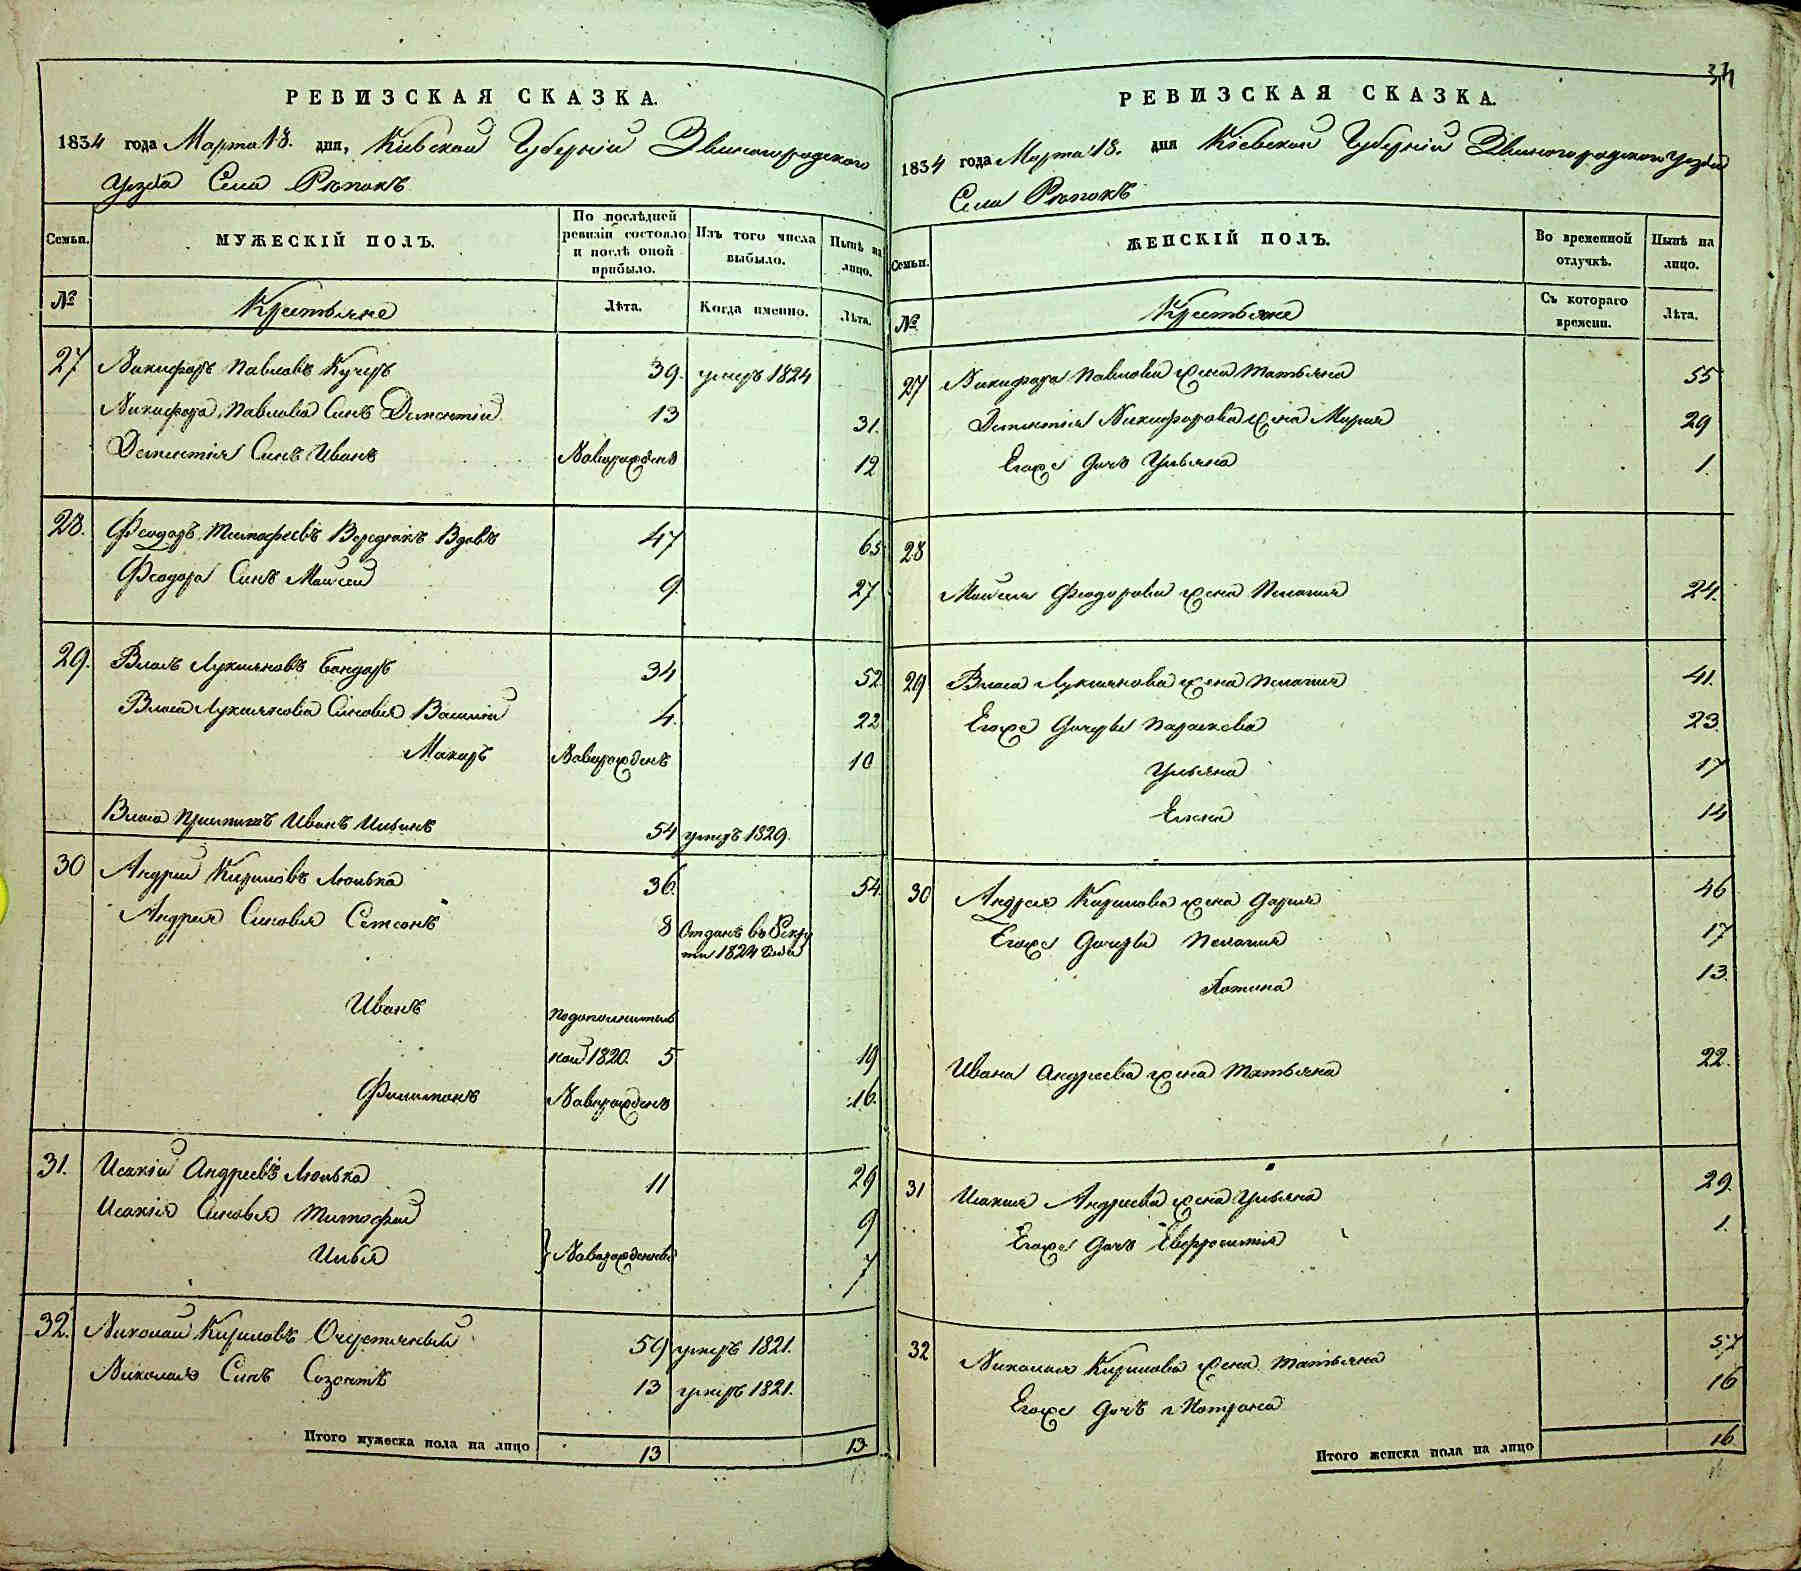 РЕВИЗСКАЯ СКАЗКА.
1834 года Марта 18. дня, Кіевской Губерніи Звиногородского
уезда Села Репокъ
Семьи. МУЖЕСКІЙ ПОЛЪ. По послѣдней ревизіи состояло и послѣ оной прибыло. Изъ того числа выбыло. Нынѣ на лицо.
№ Крестьяне Лѣта. Когда именно. Лѣта.
27 Никифоръ Павловъ Кучеръ 39. умеръ 1824
Никифора Павлова Синъ Дементій 13 31.
Дементія Синъ Иванъ Новорожденъ 12
28. Феодоръ Тимофеевъ Вдовъ 47 65
Феодора Синъ Мойсей 9. 27
29. Власъ Лукьяновъ Бондарь 34 52
Власа Лукьянова Синовья Василій 4. 22
Макаръ Новорожденъ 10
Власа Иванъ Ильинъ 54 умеръ 1829.
30 Андрей Кириловъ Люлька 36. 54.
Андрея Синовья Самсонъ 8 Отданъ въ Рекру
ти 1824 Года
Иванъ подополнитель
ной 1820. 5 19
Филимонъ Новорожденъ 16.
31. Исакій Андреевъ Люлька 11 29
Исакія Синовья Тимофей 9
Илья } Новорожденны 7
32. Николай Кириловъ 59 умеръ 1821.
Николая Синъ Созонтъ 13 умеръ 1821.
Итого мужеска пола на лицо 13 13
34
РЕВИЗСКАЯ СКАЗКА.
1834 года Марта 18. дня Кіевской Губерніи Звиногородскои уезда
Села Репокъ
Семьи. ЖЕНСКІЙ ПОЛЪ. Во временной отлучкѣ. Нынѣ на лицо.
№ Крестьяне Съ котораго времени. Лѣта.
27 Никифора Павлова жена Татьяна 55
Дементія Никифорова жена Марія 29
Егоже дочь Ульяна 1.
28
Мойсея Феодорова жена Пелагия 24.
29 Власа Лукьянова жена Пелагия 41.
Егоже дочеры Параскева 23
Ульяна 17
Елена 14
30 Андрея Кирилова жена Дарія 46
Егоже дочеры Пелагия 17
Фотина 13.
Ивана Андреева жена Татьяна 22.
31 Исакия Андреева жена Ульяна 29.
Егоже дочь Евфросинія 1.
32 Николая Кирилова жена Татьяна 57
Егоже дочь Мотрона 16
Итого женска пола на лицо 16